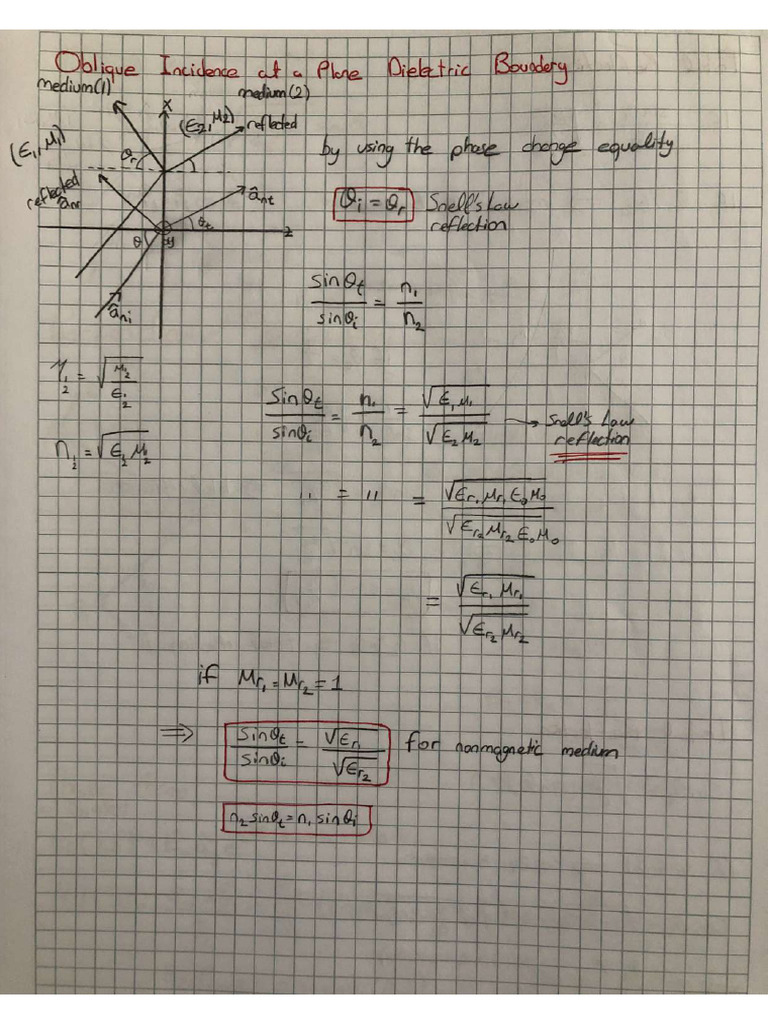 Oblique Incidence at a Plane Dielectric Boundery
medium(1)
medium(2)
x
(ε1, μ1)
(ε2, μ2)
reflected
θr
reflected
ânr
ânt
θt
z
θ
y
âni
by using the phase change equality
θi = θr Snell's Law
reflection
sinθt / sinθi = n1 / n2
η1/2 = √(μ1/2 / ε1/2)
n1/2 = √(ε1/2 μ1/2)
sinθt / sinθi = n1 / n2 = √(ε1 μ1) / √(ε2 μ2) → Snell's Law
reflection
" = " = √(εr1 μr1 ε0 μ0) / √(εr2 μr2 ε0 μ0)
= √(εr1 μr1) / √(εr2 μr2)
if μr1 = μr2 = 1
⇒ sinθt / sinθi = √εr1 / √εr2 for nonmagnetic medium
n2 sinθt = n1 sinθi